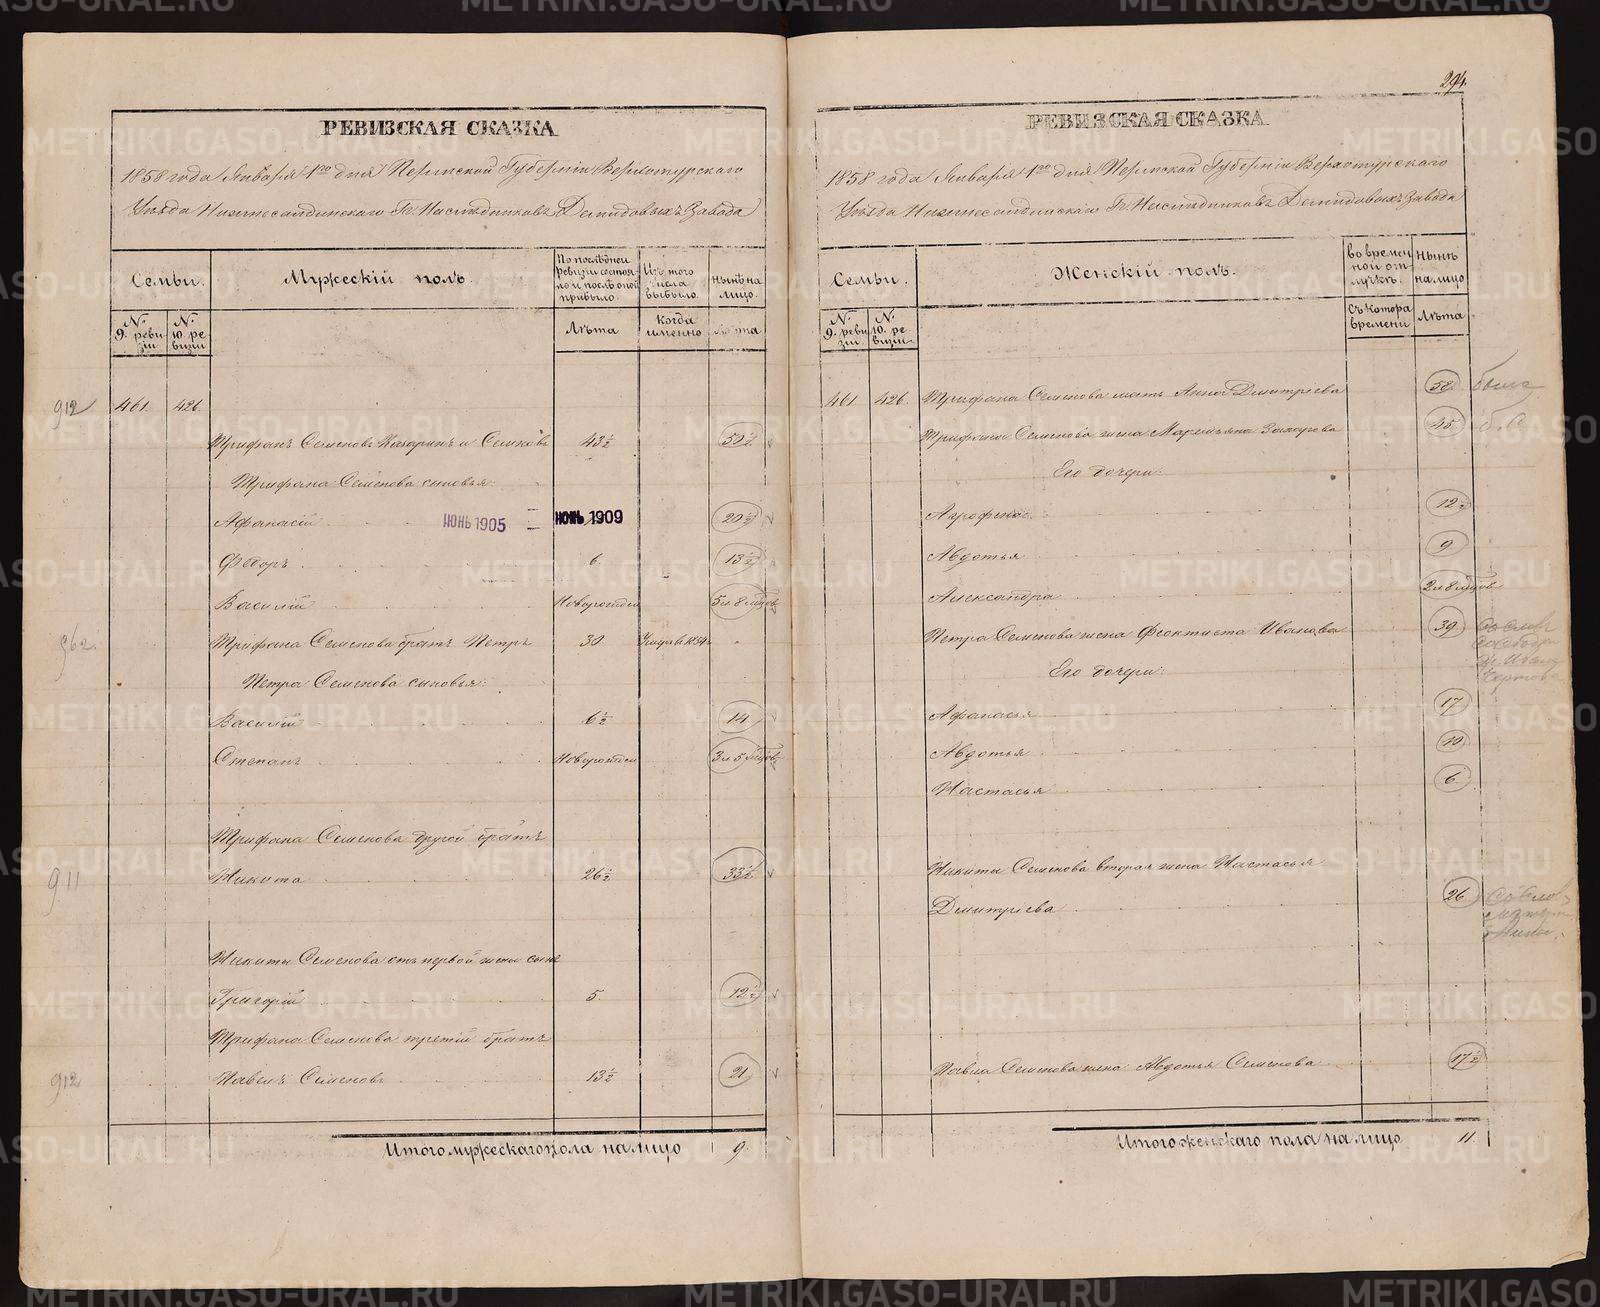 294.
РЕВИЗСКАЯ СКАЗКА
1858 года Января 1го дня Пермской Губернiи Верхотурскаго
Уѣзда Нижнесалдинскаго Гг. Наслѣдниковъ Демидовыхъ Завода
Семьи.
Мужескiй полъ.
По послѣдней ревизiи состояло и послѣ оной прибыло.
Изъ того числа выбыло.
Нынѣ на лицо.
№ 9. ревизiи
№ 10. ревизiи
Лѣта
Когда именно
Лѣта
912 461. 426.
Трифанъ Семеновъ и Семковъ 43½ 50½
Трифана Семенова сыновья:
Афанасiй ИЮНЬ 1905 ИЮНЬ 1909 20½
Федоръ 6. 13½
Василiй Новорожден 5 и 8 мѣсцов
962 Трифана Семенова братъ Петръ 30. Умеръ в 1854
Петра Семенова сыновья:
Василiй 6½ 14
Степанъ Новорожден 3 и 5 мѣсцов
Трифана Семенова другой братъ
911 Никита 26½ 33½
Никиты Семенова отъ первой жены сынъ
Григорiй 5. 12½
Трифана Семенова третiй братъ
912 Павелъ Семеновъ 13½ 21
Итого мужескаго пола на лицо 9.
РЕВИЗСКАЯ СКАЗКА
1858 года Января 1го дня Пермской Губернiи Верхотурскаго
Уѣзда Нижнесалдинскаго Гг. Наслѣдниковъ Демидовыхъ Завода
Семьи.
Женскiй полъ.
Во временной отлучкѣ.
Нынѣ на лицо
№ 9. ревизiи
№ 10. ревизiи.
Съ котора времени
Лѣта
461 426. Трифана Семенова мать Анна Дмитрiева 58
Трифана Семенова жена Маремьяна Захарова 45
Его дочери:
Агрофена 12½
Авдотья 9
Александра 2 и 8 мѣсцов
Петра Семенова жена Феоктиста Иванова 39
Его дочери:
Афанасья 17
Авдотья 10
Настасья 6
Никиты Семенова вторая жена Настасья
Дмитрiева 26
Павла Семенова жена Авдотья Семенова 17½
Итого женскаго пола на лицо 11.
METRIKI.GASO-URAL.RU